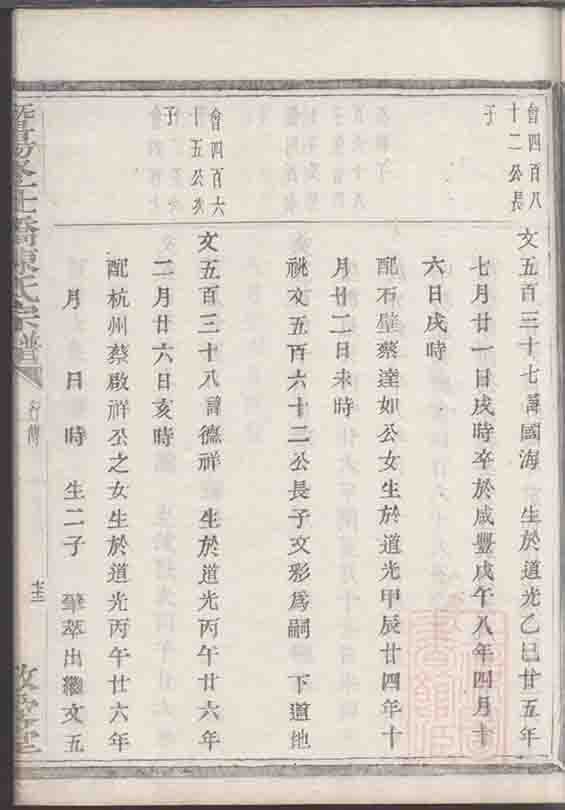 會四百八
十二公長
子
文五百三十七諱國海 生於道光乙巳廿五年
七月廿一日戌時卒於咸豐戊午八年四月十
六日戌時
配石壁蔡達如公女生於道光甲辰廿四年十
月廿二日未時
祧文五百六十二公長子文彩為嗣 下道地
會四百六
十五公次
子
文五百三十八諱德祥 生於道光丙午廿六年
二月廿六日亥時
配杭州蔡啟祥公之女生於道光丙午廿六年
月 日 時 生二子 肇萃出繼文五
橋陳氏宗譜
行傳